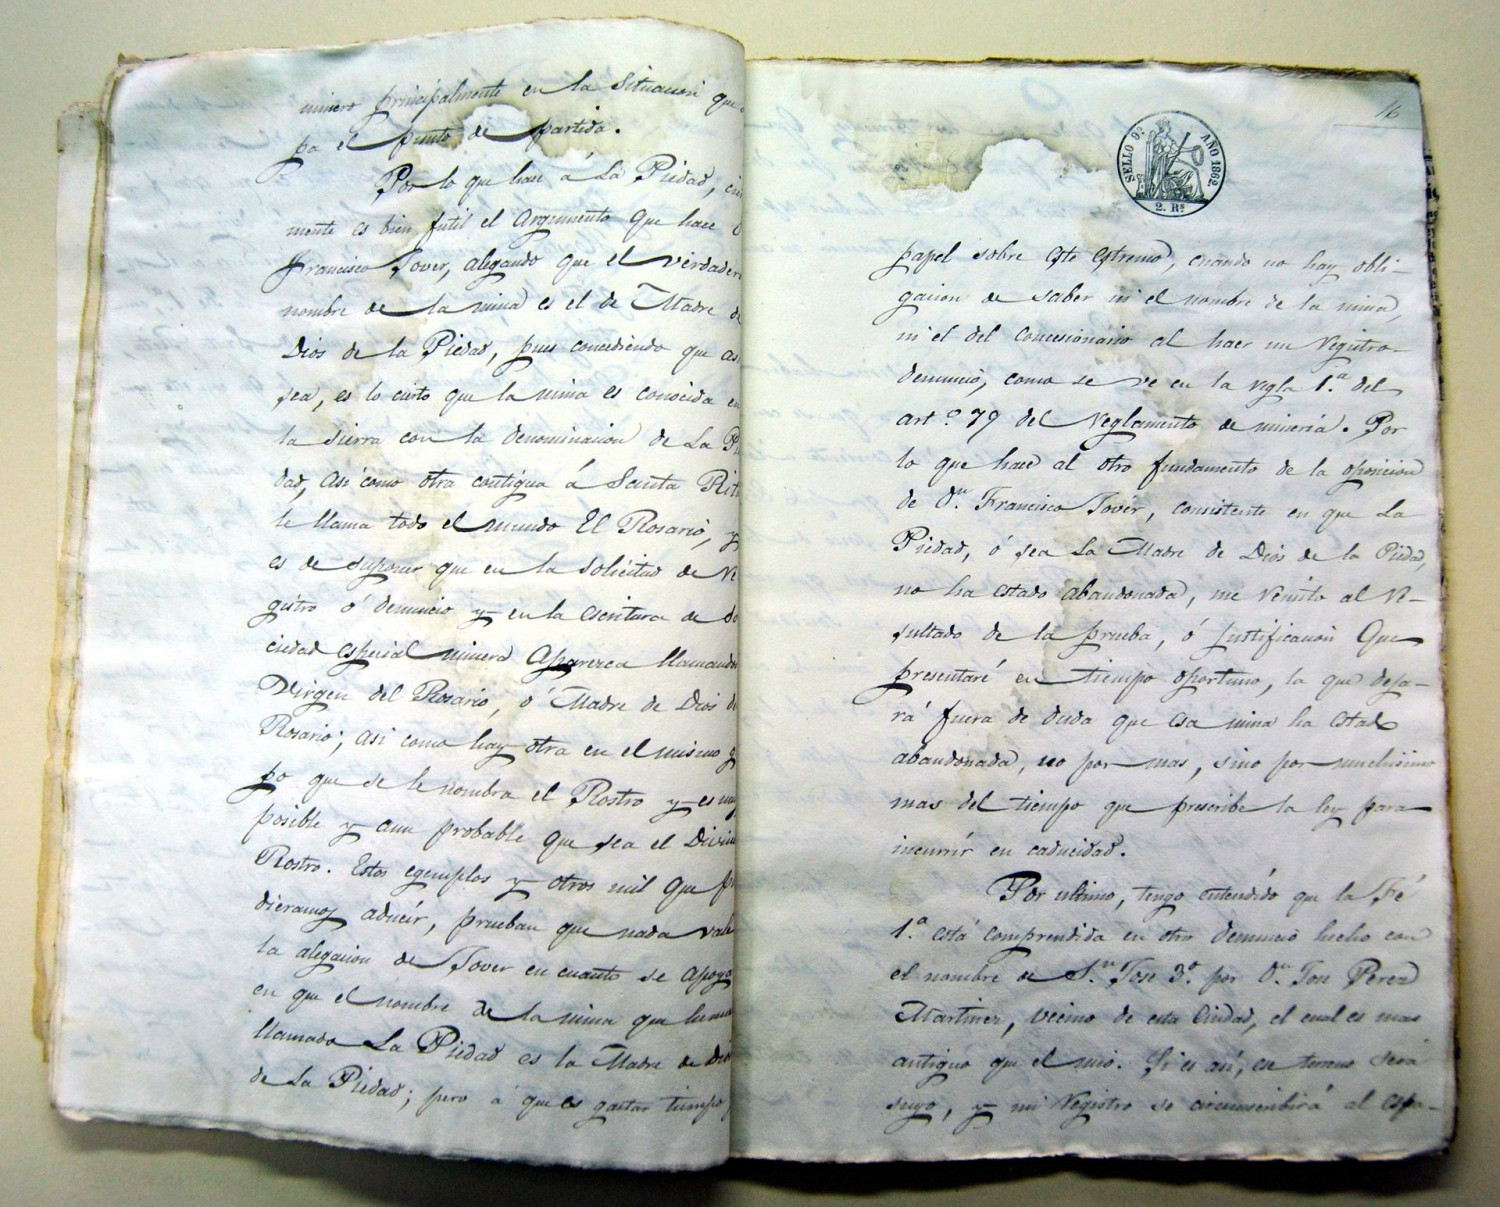 minero principalmente en la situacion que
pa el punto de partida.
Por lo que hace á La Piedad,
mente es bien futil el argumento que hace
Francisco Jover, alegando que el verdader
nombre de la mina es el de Madre de
Dios de la Piedad, pues concediendo que as
sea, es lo cierto que la mina es conocida en
la sierra con la denominacion de La Pi
dad, así como otra contigua á Santa Rita
le llama todo el mundo El Rosario, y
es de suponer que en la solicitud de Re
gistro ó denuncio y en la escritura de So
ciedad especial minera aparezca llamandose
Virgen del Rosario, ó Madre de Dios de
Rosario; asi como hay otra en el mismo g
po que se le nombra el Rostro y es muy
posible y aun probable que sea el Divino
Rostro. Estos egemplos y otros mil que pu
dieramos aducir, prueban que nada vale
la alegacion de Jover en cuanto se apoya
en que el nombre de la mina que hemos
llamado La Piedad es la Madre de Dios
de La Piedad; pero á que es gastar tiempo
16
SELLO 9º AÑO 1862.
2. Rs
papel sobre este estremo, cuando no hay obli-
gacion de saber ni el nombre de la mina,
ni el del concesionario al hacer un registro-
denuncio, como se ve en la regla 1.ª del
art.º 79 del Reglamento de minería. Por
lo que hace al otro fundamento de la oposicion
de Dn. Francisco Jover, consistente en que La
Piedad, ó sea La Madre de Dios de la Piedad,
no ha estado abandonada, me remito al re-
sultado de la prueba, ó justificacion que
presentaré en tiempo oportuno, la que deja-
rá fuera de duda que esa mina ha estado
abandonada, no por mas, sino por muchisimo
mas del tiempo que prescribe la ley para
incurrir en caducidad.
Por ultimo, tengo entendido que la Fé
1.ª está comprendida en otro denuncio hecho con
el nombre de Sn. Jose 3º. por Dn. Jose Perez
Martinez, vecino de esta Ciudad, el cual es mas
antiguo que el mio. Si es así, ese terreno será
suyo, y mi registro se circunscribirá al espa-